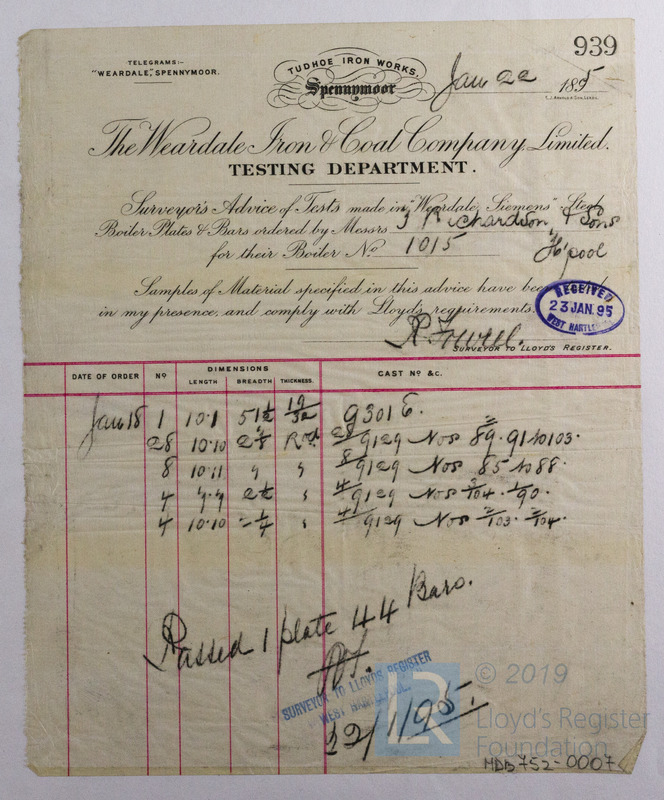 939
TELEGRAMS:-
"WEARDALE," SPENNYMOOR.
TUDHOE IRON WORKS,
Spennymoor
Jan 22 1895
The Weardale Iron & Coal Company, Limited.
TESTING DEPARTMENT.
Surveyor's Advice of Tests made in "Weardale, Siemens" Steel
Boiler Plates & Bars ordered by Messrs T Richardson & Sons
for their Boiler No 1015 H'pool
Samples of Material specified in this advice have been
in my presence, and comply with Lloyd's requirements.
RECEIVED
23 JAN. 95
WEST HARTLEPOOL
SURVEYOR TO LLOYD'S REGISTER.
DATE OF ORDER No DIMENSIONS CAST No &c.
LENGTH BREADTH THICKNESS
Jan 18 1 10.1 51½ 19/32 9301 E.
28 10.10 2⅛ Rod 28/9129 Nos 89. 91 to 103.
8 10.11 " " 8/9129 Nos 85 to 88.
4 9129 Nos
4 10.10 9129 Nos
Passed 1 plate 44 Bars.
SURVEYOR TO LLOYDS REGISTER
WEST HARTLEPOOL.
22/1/95.
© 2019
LR
Lloyd's Register
Foundation
MDB752-0007